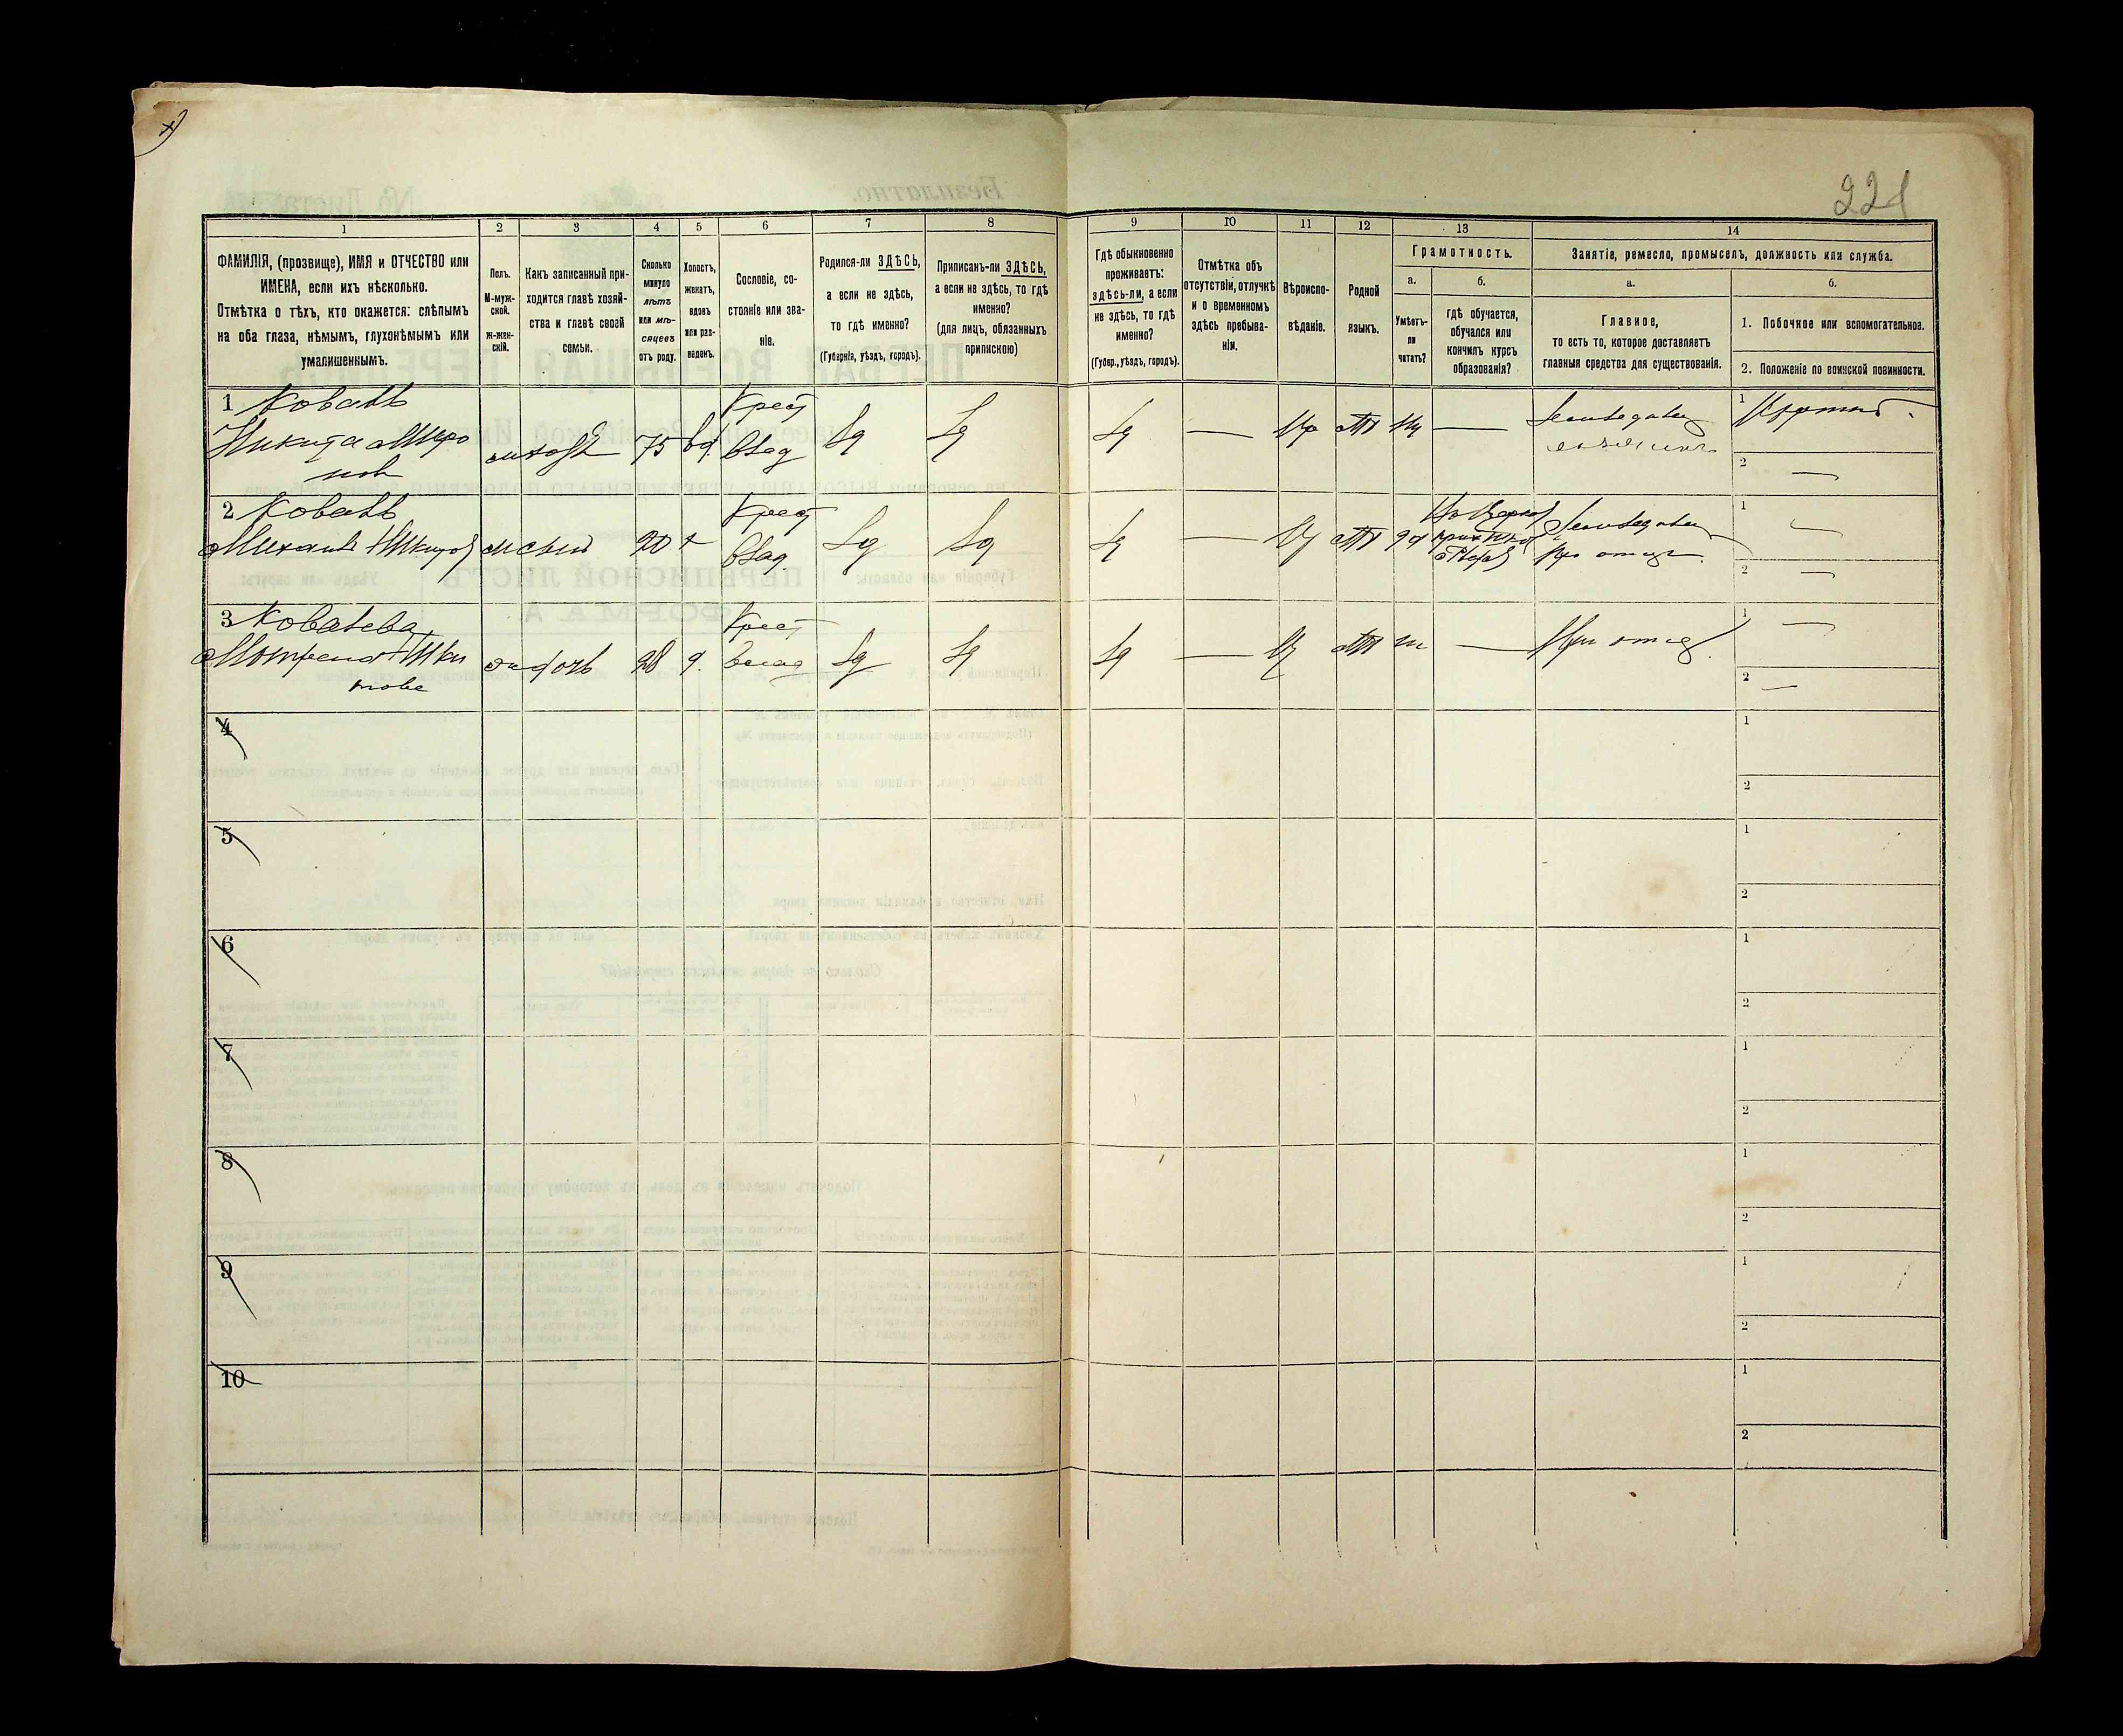 221
1
2
3
4
5
6
7
8
9
10
11
12
13
14
ФАМИЛІЯ, (прозвище), ИМЯ и ОТЧЕСТВО или
ИМЕНА, если ихъ нѣсколько.
Отмѣтка о тѣхъ, кто окажется: слѣпымъ
на оба глаза, нѣмымъ, глухонѣмымъ или
умалишеннымъ.
Полъ.
М-муж-
ской.
ж-жен-
скій.
Какъ записанный при-
ходится главѣ хозяй-
ства и главѣ своей
семьи.
Сколько
минуло
лѣтъ
или мѣ-
сяцевъ
отъ роду.
Холостъ,
женатъ,
вдовъ
или раз-
веденъ.
Сословіе, со-
стояніе или зва-
ніе.
Родился-ли ЗДѢСЬ,
а если не здѣсь,
то гдѣ именно?
(Губернія, уѣздъ, городъ).
Приписанъ-ли ЗДѢСЬ,
а если не здѣсь, то гдѣ
именно?
(для лицъ, обязанныхъ
припискою)
Гдѣ обыкновенно
проживаетъ:
здѣсь-ли, а если
не здѣсь, то гдѣ
именно?
(Губер., уѣздъ, городъ).
Отмѣтка объ
отсутствіи, отлучкѣ
и о временномъ
здѣсь пребыва-
ніи.
Вѣроиспо-
вѣданіе.
Родной
языкъ.
Грамотность.
а.
Умѣетъ-
ли
читать?
б.
гдѣ обучается,
обучался или
кончилъ курсъ
образованія?
Занятіе, ремесло, промыселъ, должность или служба.
а.
Главное,
то есть то, которое доставляетъ
главныя средства для существованія.
б.
1. Побочное или вспомогательное.
2. Положеніе по воинской повинности.
1 Коваль
Никита Миро
нов
75
вд
Крест
влад
Зд
Зд
Зд
—
Пр
Мл
Нт
—
Земледелец
хозяинъ
1
2 —
2 Коваль
Михаилъ Никитов
м
сынъ
20
х
Крест
влад
Зд
Зд
Зд
—
Мл
да
Земледелец
при отце
1 —
2 —
3 Ковалева
Мотрена Ники
това
ж
дочь
28
д.
Крест
влад
Зд
Зд
Зд
—
Мл
нт
—
При отце
1 —
2 —
4
1
2
5
1
2
6
1
2
7
1
2
8
1
2
9
1
2
10
1
2